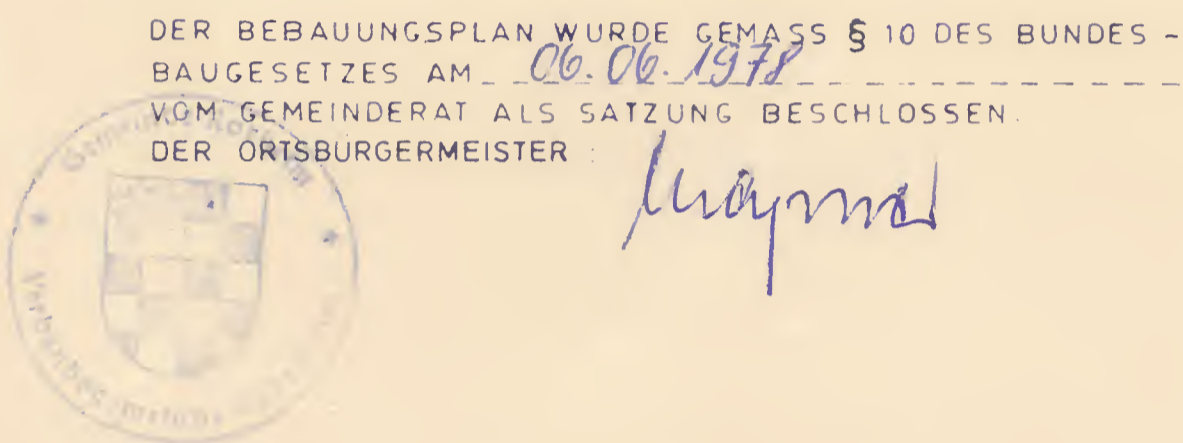 DER BEBAUUNGSPLAN WURDE GEMÄSS § 10 DES BUNDES -
BAUGESETZES AM 06.06.1978
VOM GEMEINDERAT ALS SATZUNG BESCHLOSSEN.
DER ORTSBÜRGERMEISTER :
Gemeinde